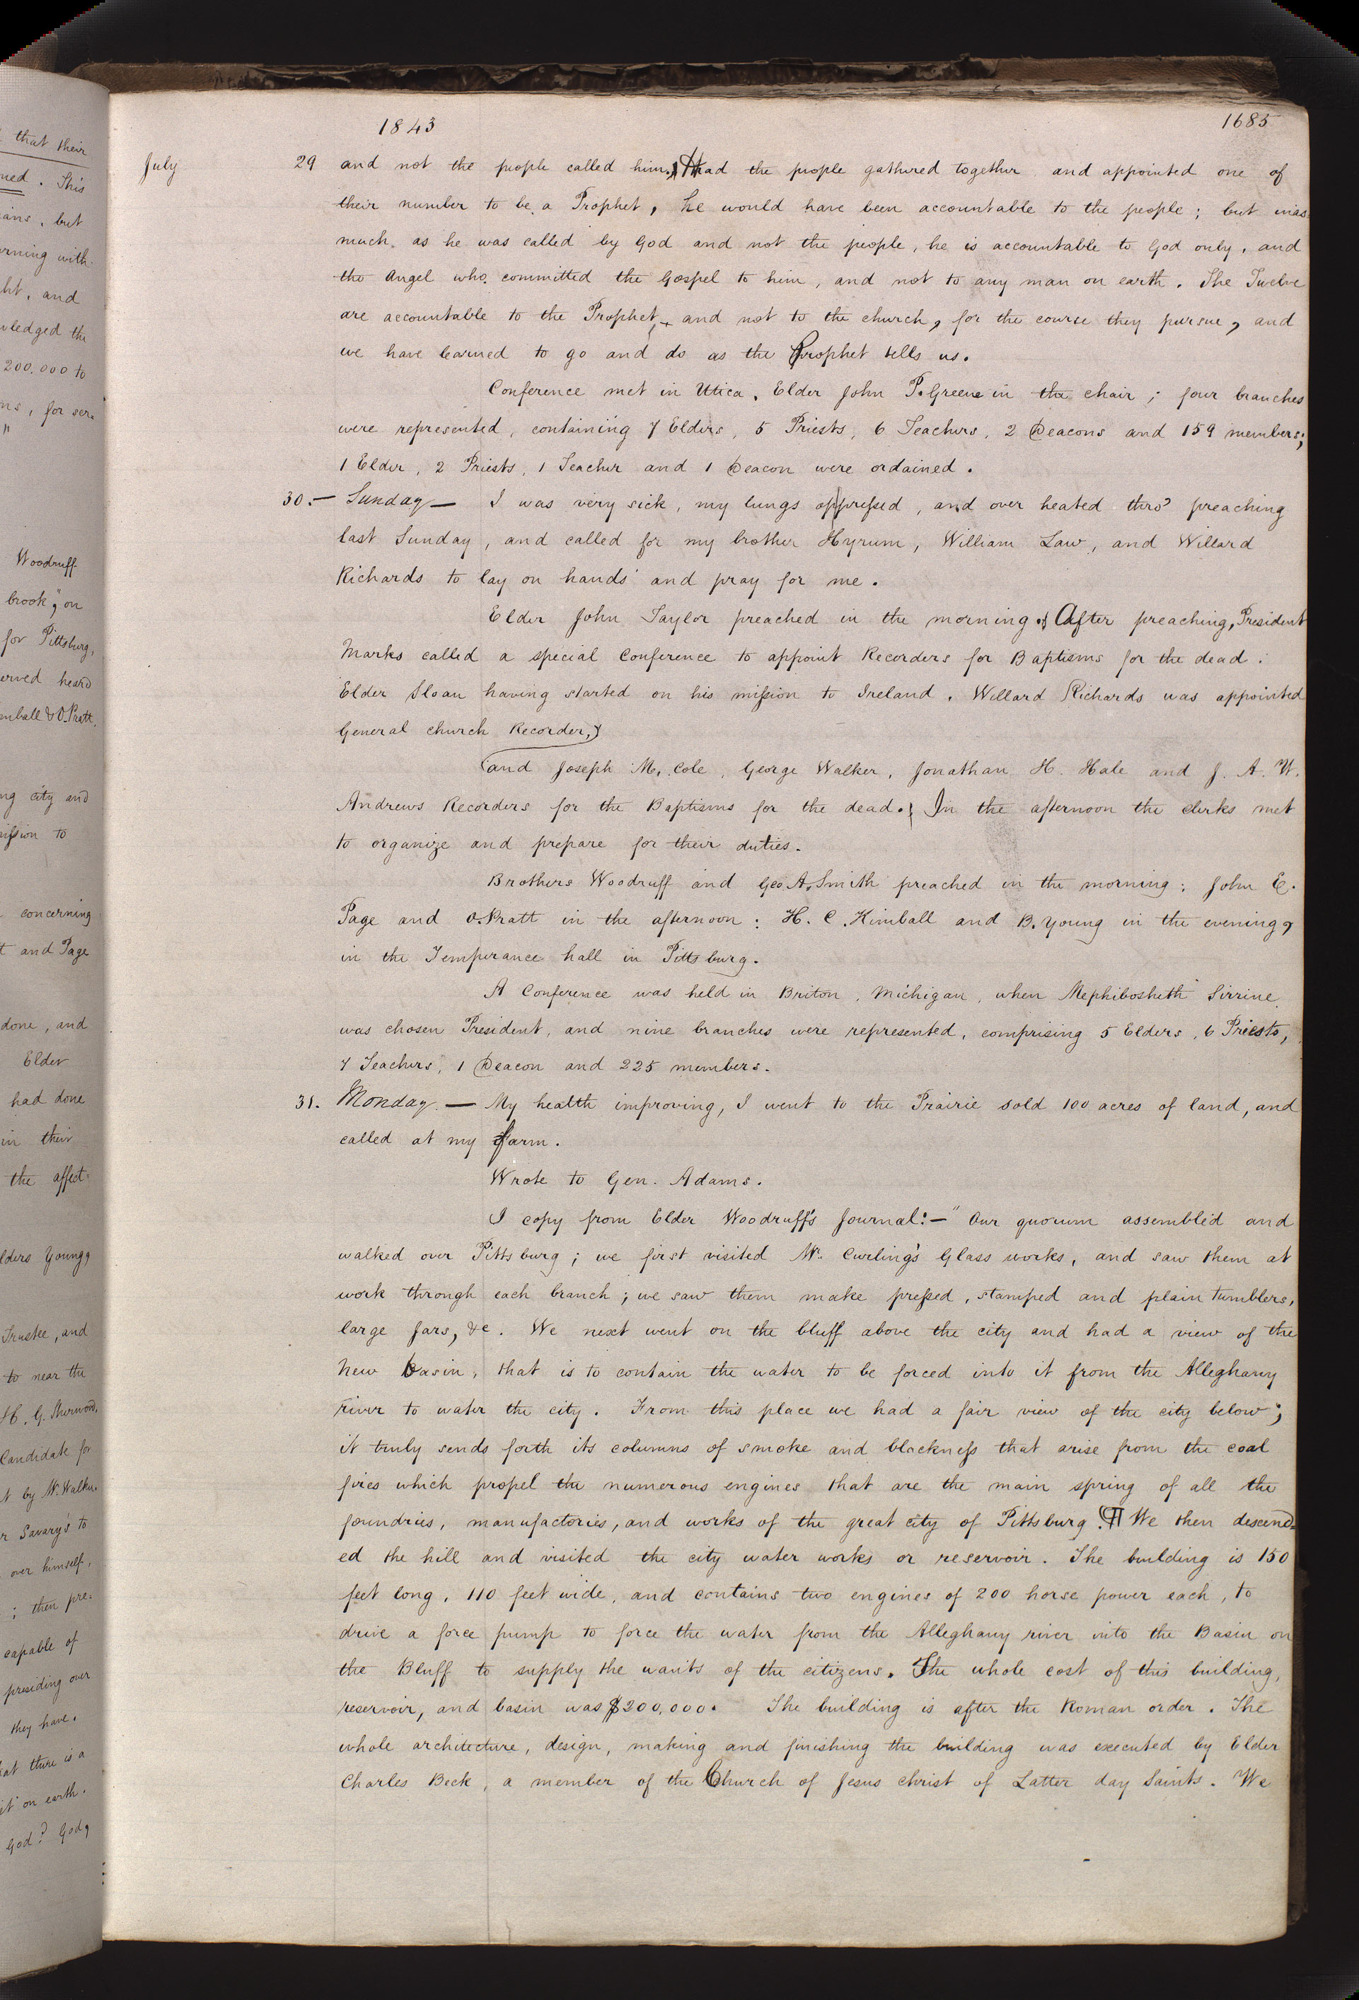 that their
ned. This
ians, but
rning with
ht, and
wledged the
200.000 to
ns, for ser-
"
Woodruff
brook," on
for Pittsburg,
erved heard
mball & O. Pratt.
ng city and
ission to
concerning
t and Page
done, and
Elder
had done
in their
the affect-
lders Young,
Trustee, and
to near the
H. G. Sherwood,
Candidate for
t by Mr. Walker
r Savary's to
over himself,
; then pre-
capable of
presiding over
they have.
hat there is a
it on earth.
God? God,
1843 1685
July 29 and not the people called him. Had the people gathered together and appointed one of
their number to be a Prophet, he would have been accountable to the people; but inas
much as he was called by God and not the people, he is accountable to God only, and
the Angel who committed the Gospel to him, and not to any man on earth. The Twelve
are accountable to the Prophet, and not to the church, for the course they pursue, and
we have learned to go and do as the Prophet tells us.
Conference met in Utica, Elder John P. Greene in the chair; four branches
were represented, containing 7 Elders, 5 Priests, 6 Teachers, 2 Deacons and 159 members;
1 Elder, 2 Priests, 1 Teacher and 1 Deacon were ordained.
30.— Sunday— I was very sick, my lungs oppressed, and over heated thro' preaching
last Sunday, and called for my brother Hyrum, William Law, and Willard
Richards to lay on hands and pray for me.
Elder John Taylor preached in the morning. After preaching, President
Marks called a special Conference to appoint Recorders for Baptisms for the dead.
Elder Sloan having started on his mission to Ireland. Willard Richards was appointed
General church Recorder,
and Joseph M. Cole, George Walker, Jonathan H. Hale and J. A. W.
Andrews Recorders for the Baptisms for the dead. In the afternoon the clerks met
to organize and prepare for their duties.
Brothers Woodruff and Geo. A. Smith preached in the morning: John E.
Page and O. Pratt in the afternoon: H. C. Kimball and B. Young in the evening,
in the Temperance hall in Pittsburg.
A Conference was held in Briton, Michigan, when Mephibosheth Sirrine
was chosen President, and nine branches were represented, comprising 5 Elders, 6 Priests,
7 Teachers, 1 Deacon and 225 members.
31. Monday.— My health improving, I went to the Prairie sold 100 acres of land, and
called at my farm.
Wrote to Gen. Adams.
I copy from Elder Woodruff's Journal:—"Our quorum assembled and
walked over Pittsburg; we first visited Mr. Curling's Glass works, and saw them at
work through each branch; we saw them make pressed, stamped and plain tumblers,
large Jars, &c. We next went on the bluff above the city and had a view of the
New basin, that is to contain the water to be forced into it from the Alleghany
river to water the city. From this place we had a fair view of the city below;
it truly sends forth its columns of smoke and blackness that arise from the coal
fires which propel the numerous engines that are the main spring of all the
foundries, manufactories, and works of the great city of Pittsburg. ¶ We then descend-
ed the hill and visited the city water works or reservoir. The building is 150
feet long, 110 feet wide, and contains two engines of 200 horse power each, to
drive a force pump to force the water from the Alleghany river into the Basin on
the Bluff to supply the wants of the citizens. The whole cost of this building,
reservoir, and basin was $200,000. The building is after the Roman order. The
whole architecture, design, making and finishing the building was executed by Elder
Charles Beck, a member of the Church of Jesus christ of Latter day Saints. We